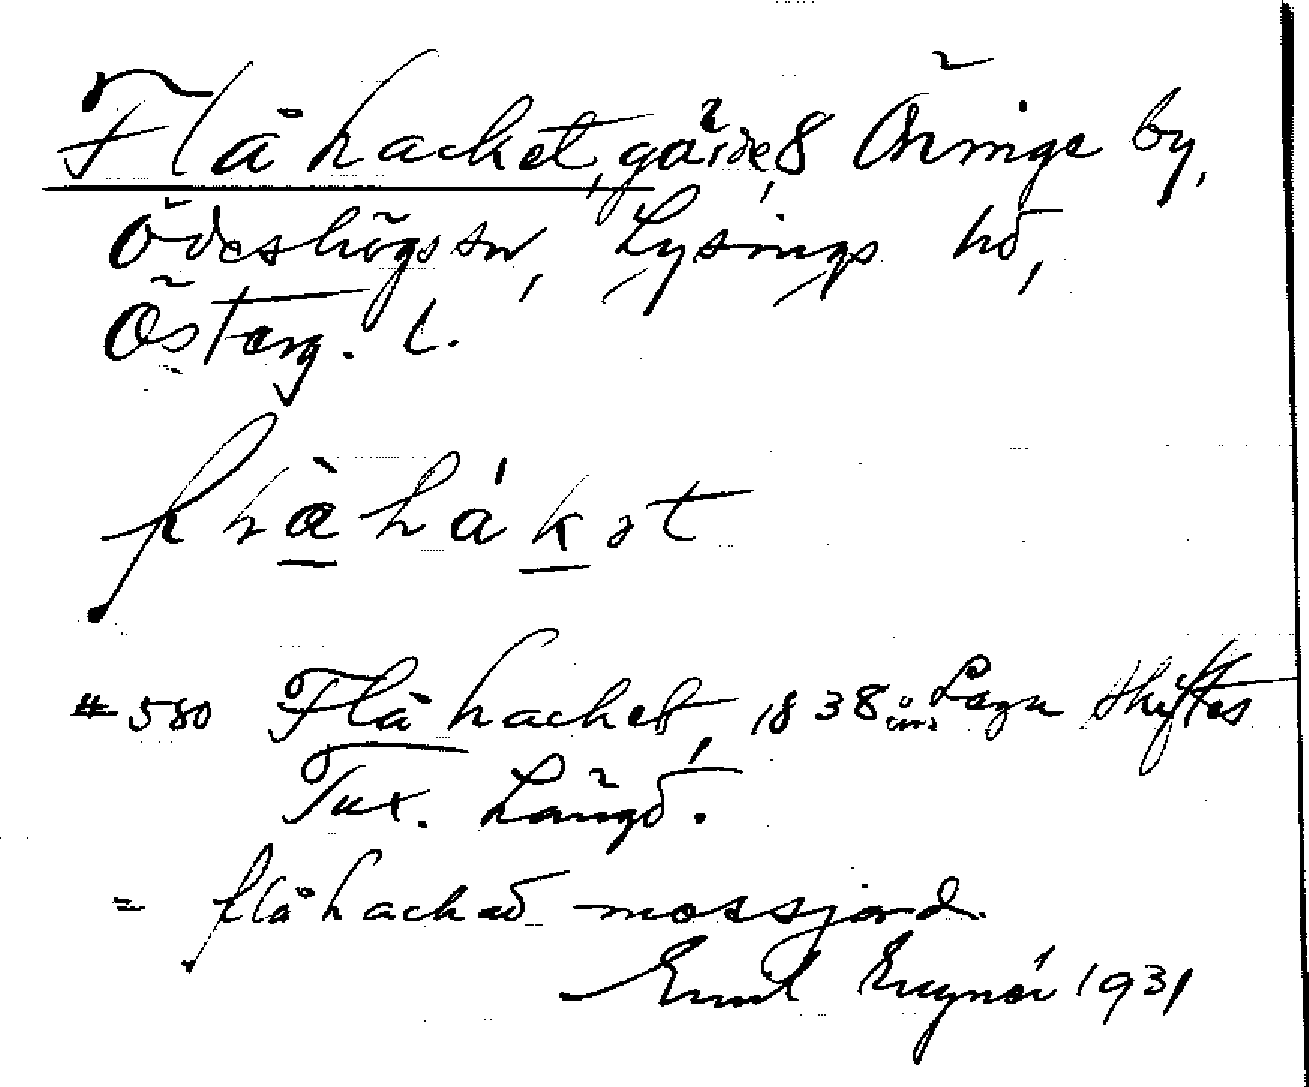 Flåhacket, gärde, 8 Öninge by,
Ödeshögs sn, Lysings hd,
Österg. l.
flåhákət
# 580 Flåhacket, 1838 års Laga Skiftes
Tax. Längd.
= flåhackad mossjord.
Emil 1931